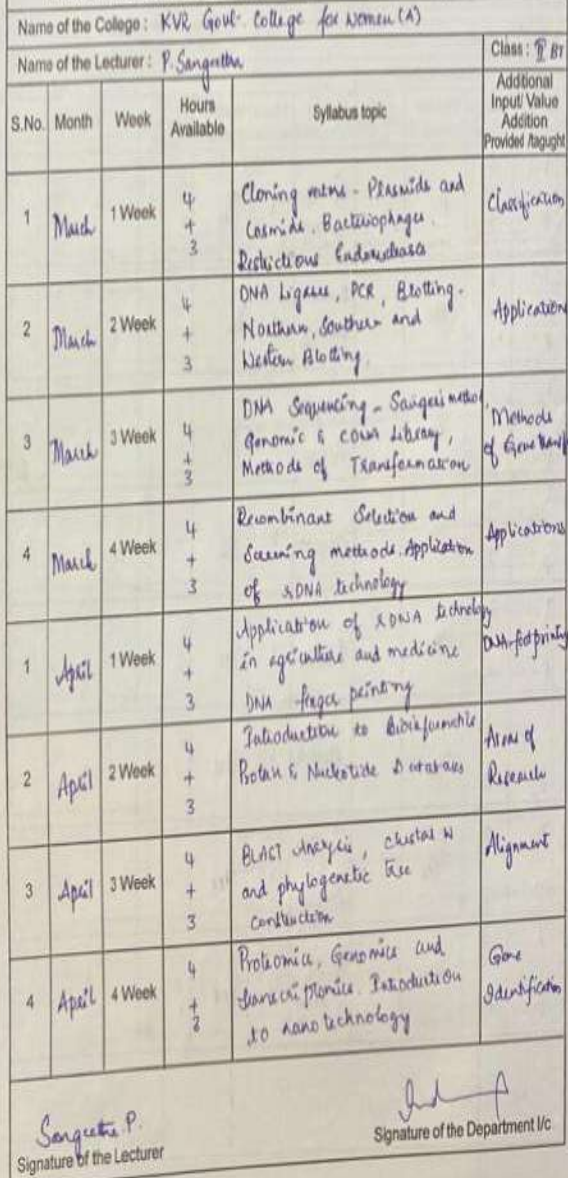 Name of the College : KVR Govt. College for Women (A)
Name of the Lecturer : P. Sangeetha
Class : BT
S.No.
Month
Week
Hours Available
Syllabus topic
Additional
Input/ Value
Addition
Provided /tagught
1
March
1 Week
4
+
3
Cloning - Plasmids and
Cosmids. Bacteriophages.
Restrictions
Classification
2
March
2 Week
4
+
3
DNA Ligases, PCR, Blotting -
Northern, Southern and
Western Blotting.
Application
3
March
3 Week
4
+
3
DNA Sequencing - Sanger's method,
Genomic & cDNA Library,
Methods of Transformation
Methods
of Gene
4
March
4 Week
4
+
3
Recombinant Selection and
Screening methods. Application
of rDNA technology
Applications
1
April
1 Week
4
+
3
Application of rDNA technology
in agriculture and medicine
DNA finger printing
DNA-foot printing
2
April
2 Week
4
+
3
Introduction to Bioinformatics
Protein & Nucleotide Databases
Areas of
Research
3
April
3 Week
4
+
3
BLAST Analysis, clustal W
and phylogenetic tree
construction
Alignment
4
April
4 Week
4
+
3
Proteomics, Genomics and
transcriptomics. Introduction
to nanotechnology
Gene
Identification
Sangeetha P.
Signature of the Lecturer
Signature of the Department I/c